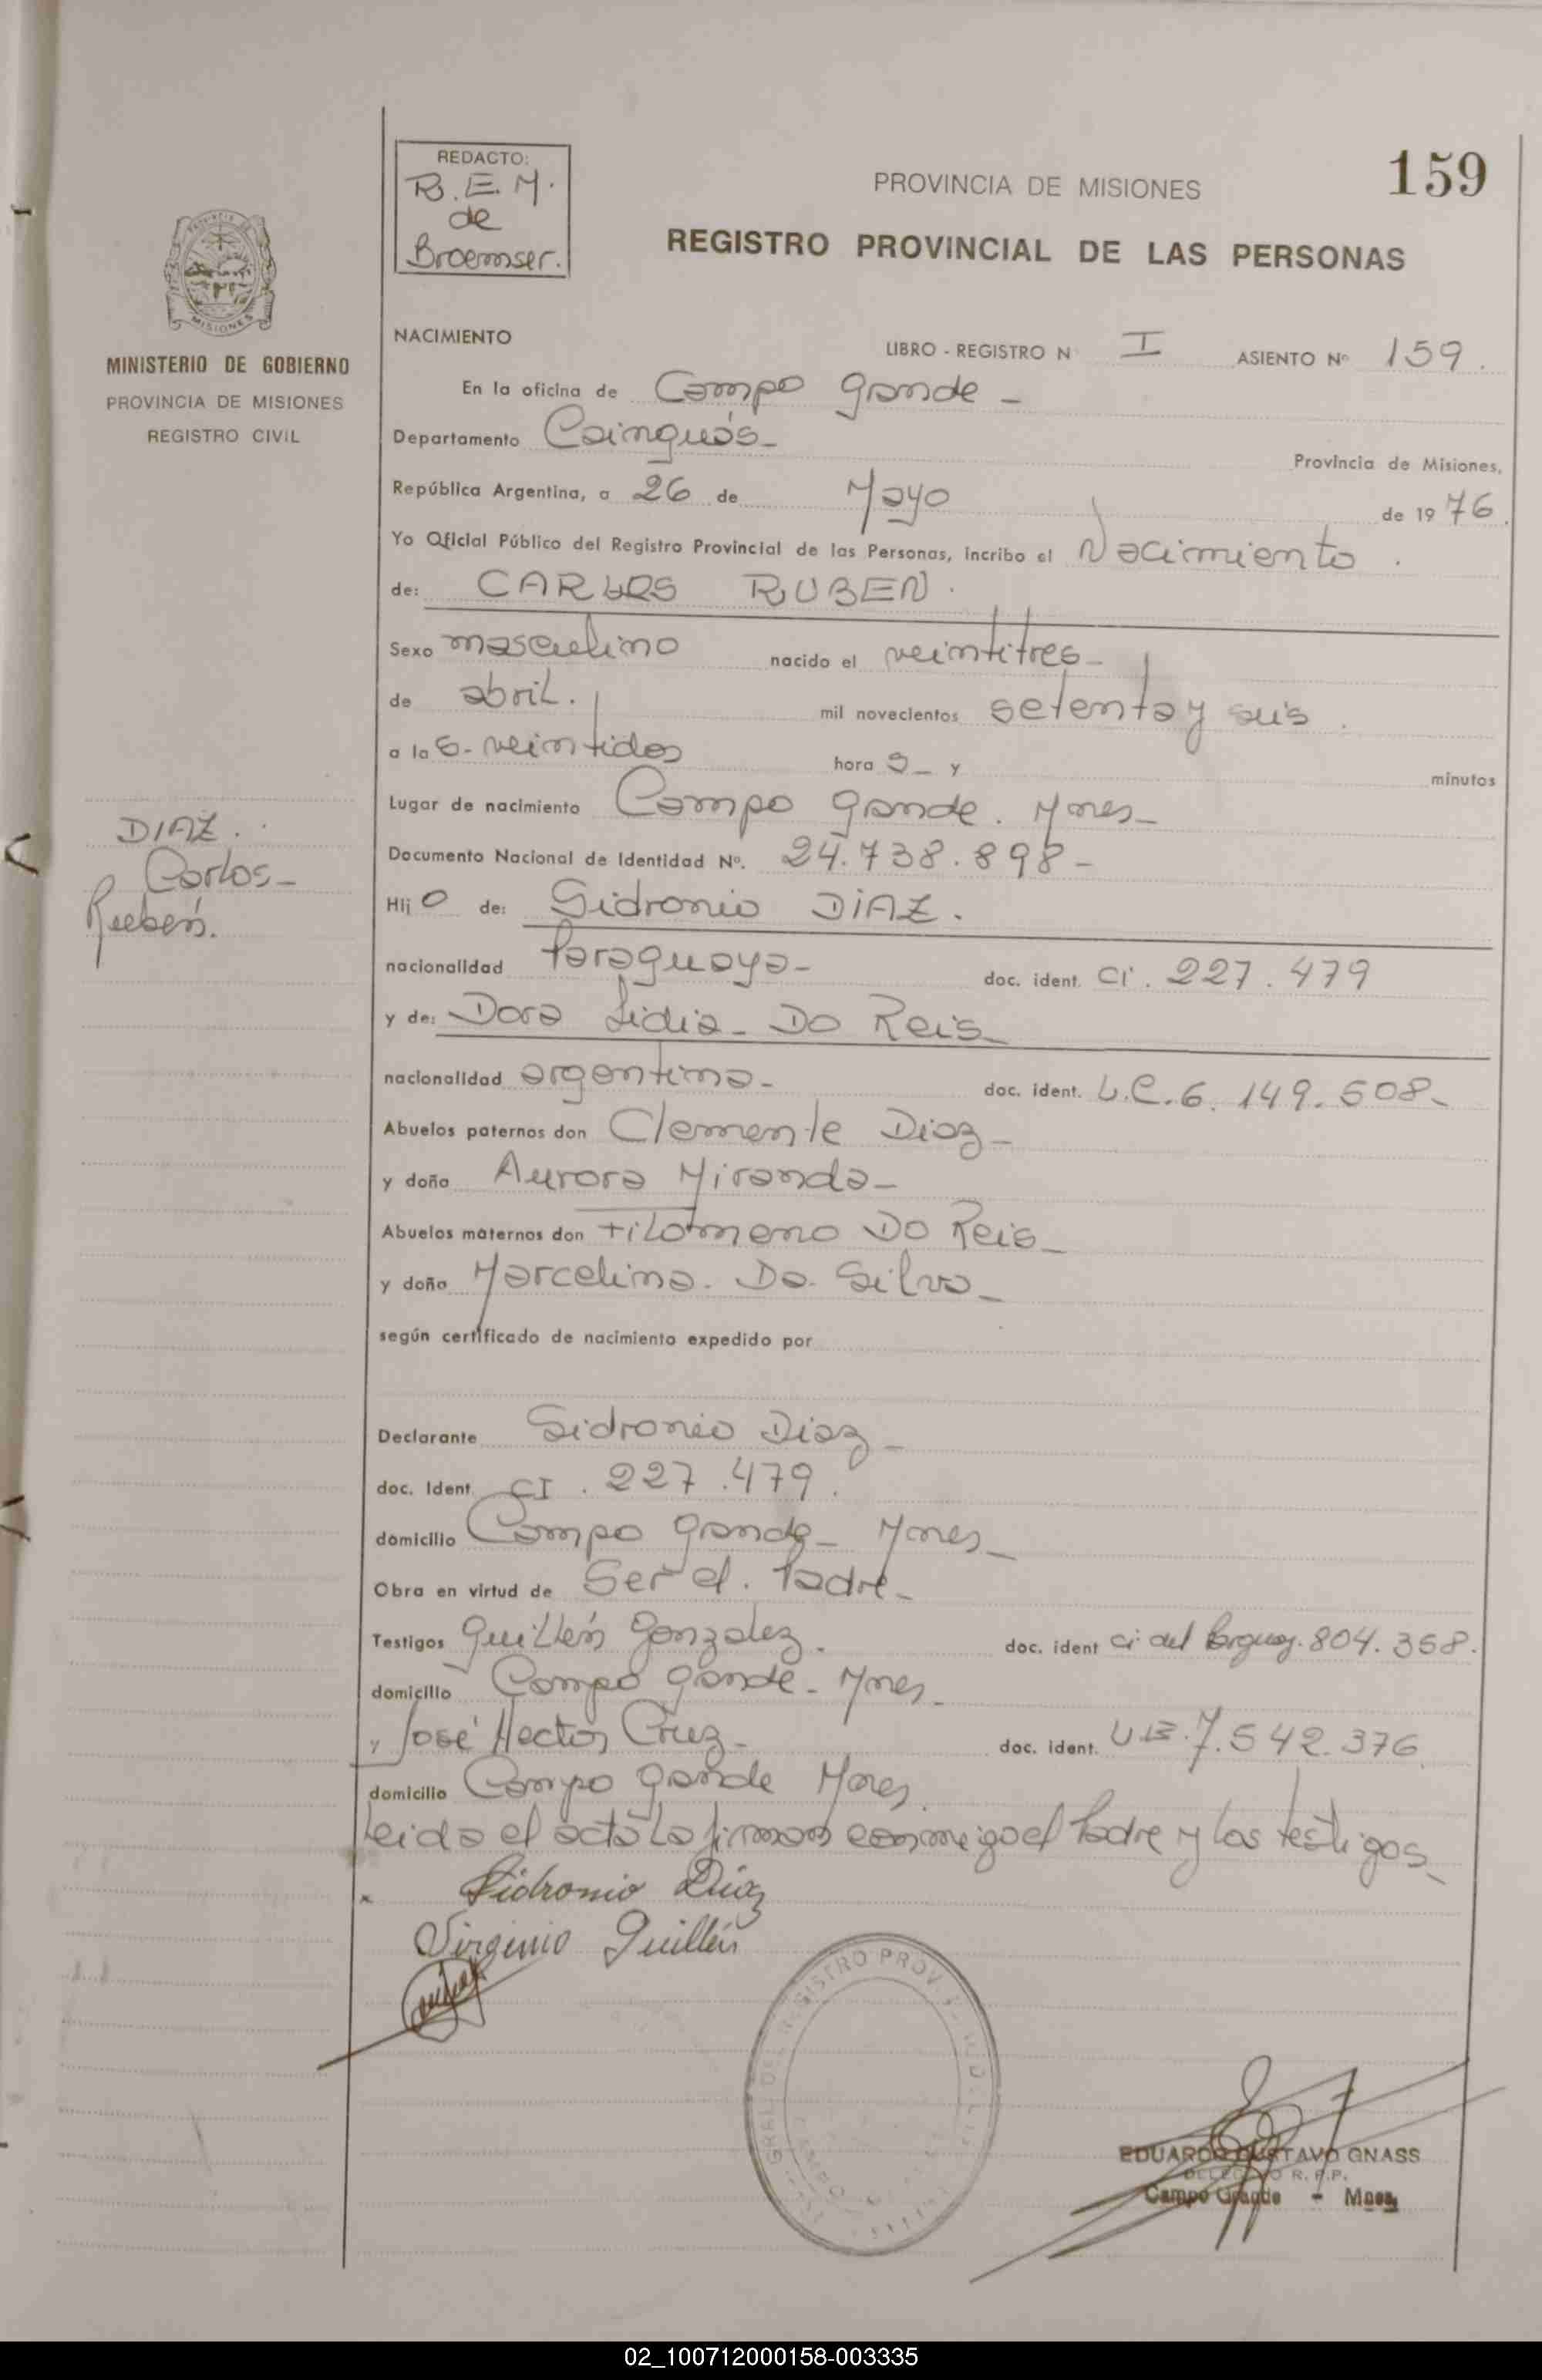 REDACTO:
R. E. M.
de
Broemser.
PROVINCIA DE MISIONES
159
REGISTRO PROVINCIAL DE LAS PERSONAS
MISIONES
MINISTERIO DE GOBIERNO
PROVINCIA DE MISIONES
REGISTRO CIVIL
NACIMIENTO
LIBRO - REGISTRO N I ASIENTO Nº 159.
En la oficina de Campo Grande -
Departamento Cainguás - Provincia de Misiones,
República Argentina, a 26 de Mayo de 1976.
Yo Oficial Público del Registro Provincial de las Personas, incribo el Nacimiento.
de: CARLOS RUBEN.
Sexo masculino nacido el veintitres -
de abril. mil novecientos setenta y seis.
a la s- veintidos hora s - y minutos
Lugar de nacimiento Campo Grande. Mnes -
Documento Nacional de Identidad Nº. 24.738.898 -
DIAZ.
Carlos -
Rubén.
Hij o de: Sidronio DIAZ.
nacionalidad Paraguaya - doc. ident. CI. 227.479
y de: Dora Lidia - Do Reis -
nacionalidad argentina - doc. ident. L.C. 6.149.508 -
Abuelos paternos don Clemente Diaz -
y doña Aurora Miranda -
Abuelos maternos don Filomeno Do Reis -
y doña Marcelina. Da. Silva -
según certificado de nacimiento expedido por
Declarante Sidronio Diaz -
doc. Ident. CI. 227.479.
domicilio Campo Grande - Mnes -
Obra en virtud de Ser el. Padre -
Testigos Guillén Gonzalez. doc. ident CI del Paraguay. 804.358.
domicilio Campo Grande - Mnes -
y José Hector Cruz - doc. ident. 7.542.376
domicilio Campo Grande Mnes.
Leida el acta la firman conmigo el Padre y los testigos -
x Sidronio Diaz
Virginio Guillén
REGISTRO PROV
EDUARDO GUSTAVO GNASS
DELEGADO R. P. P.
Campo Grande - Mnes
02_100712000158-003335